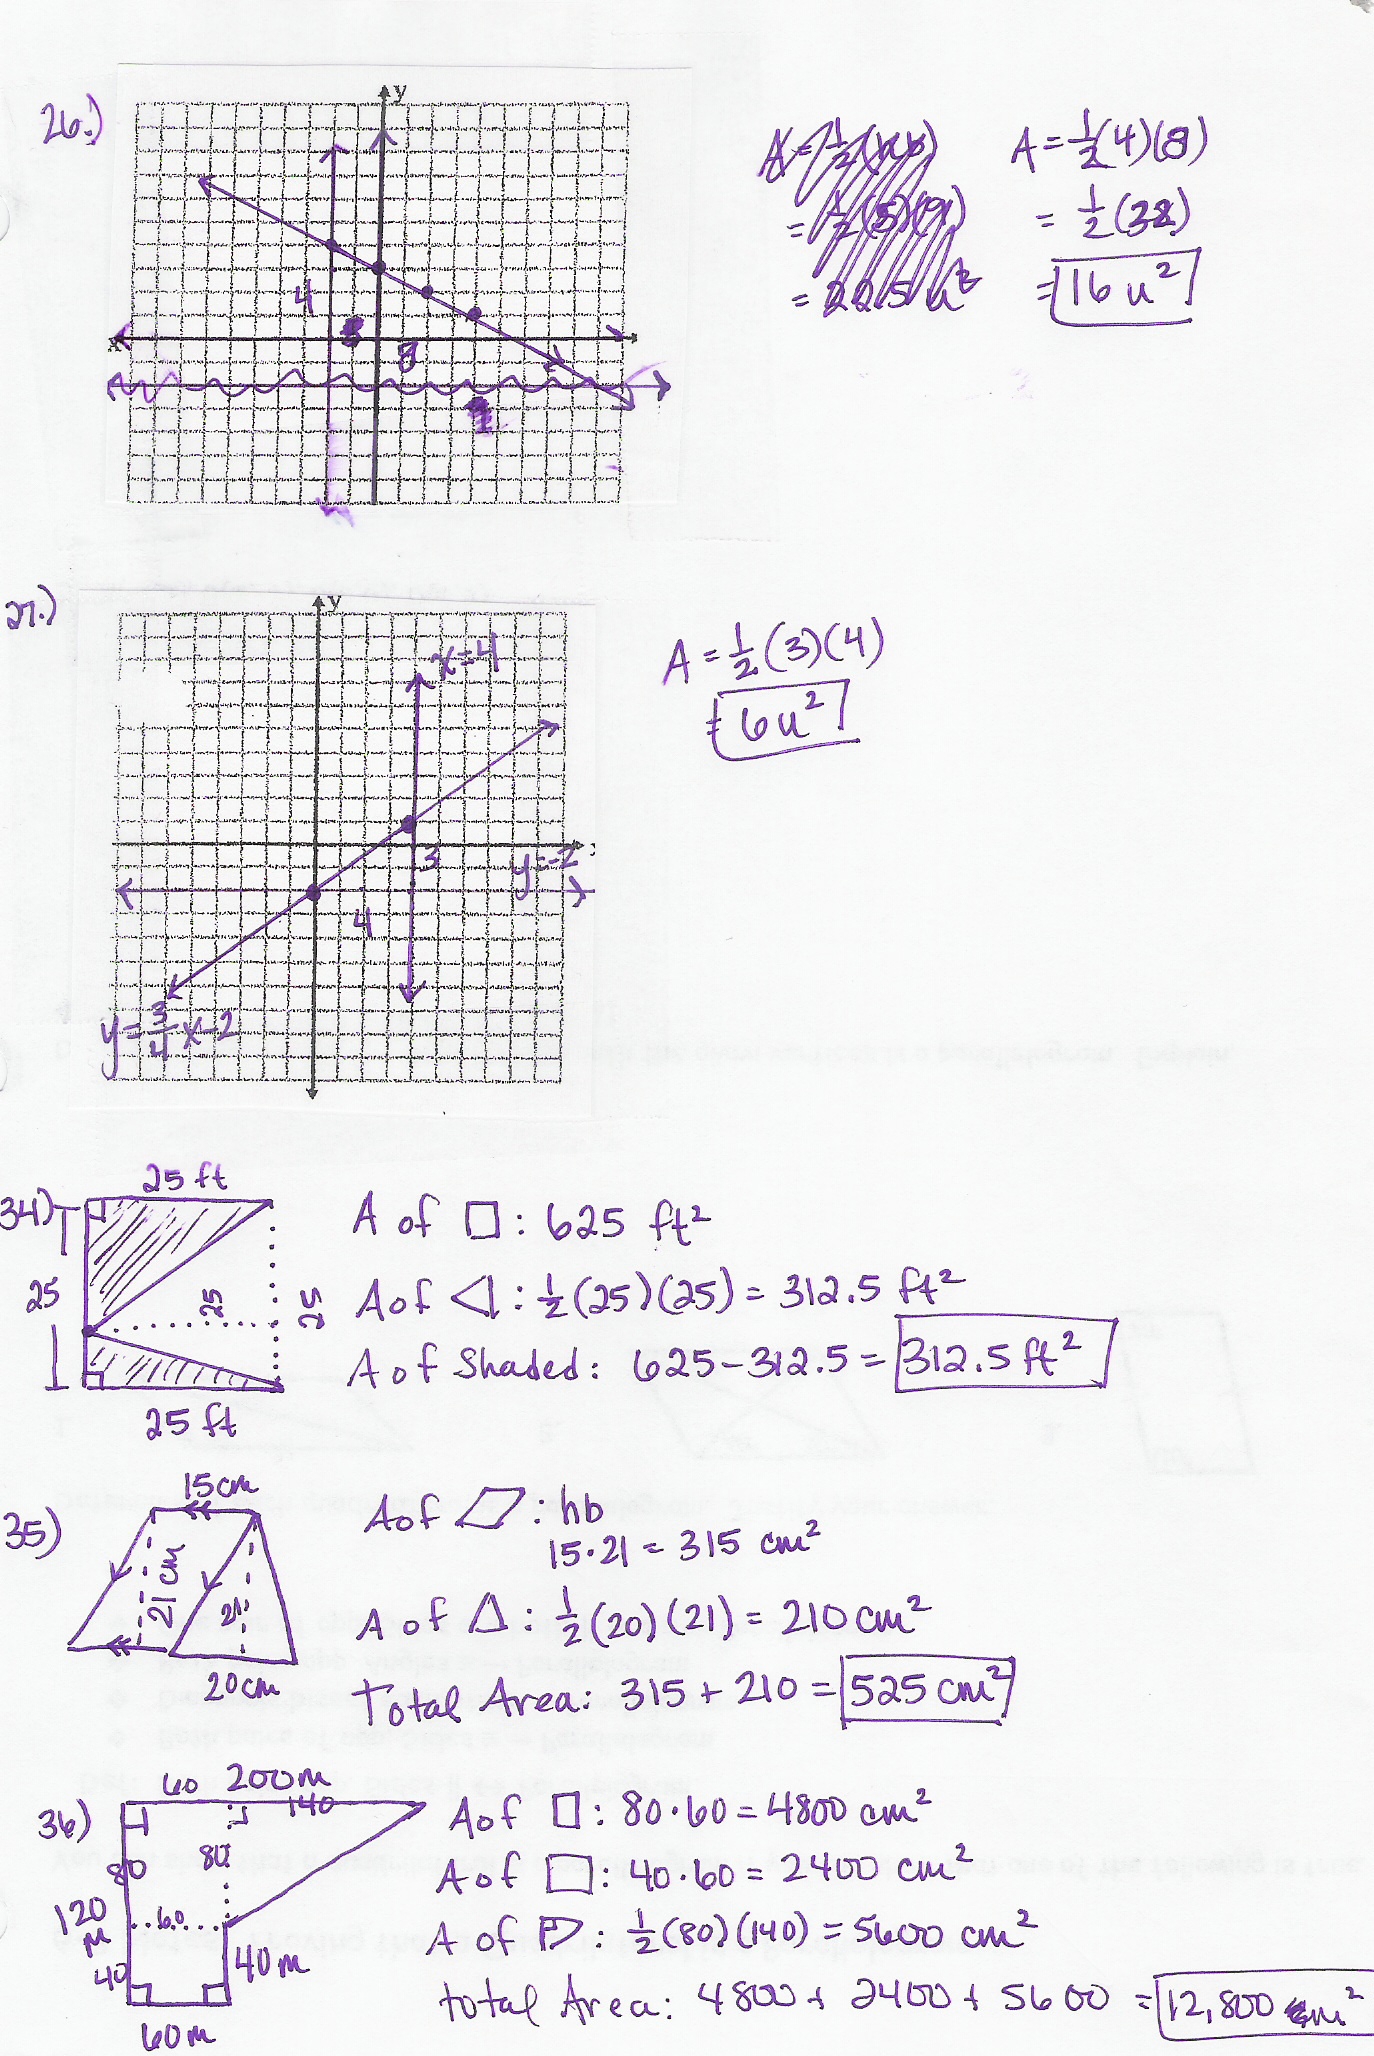 26.)
y
x
4
8
A = ½(4)(8)
= ½(32)
= 16 u²
27.)
y
x=4
3
y=-2
4
y=¾x-2
A = ½(3)(4)
= 6u²
34)
25 ft
25
25
25
25 ft
A of □: 625 ft²
A of ◁: ½(25)(25) = 312.5 ft²
A of Shaded: 625-312.5 = 312.5 ft²
35)
15cm
21 cm
21
20cm
A of ▱: hb
15·21 = 315 cm²
A of △: ½(20)(21) = 210 cm²
Total Area: 315 + 210 = 525 cm²
36)
60 200m
140
80
80
120
m
60
40
40m
60m
A of □: 80·60 = 4800 cm²
A of □: 40·60 = 2400 cm²
A of ▷: ½(80)(140) = 5600 cm²
total Area: 4800 + 2400 + 5600 = 12,800 m²